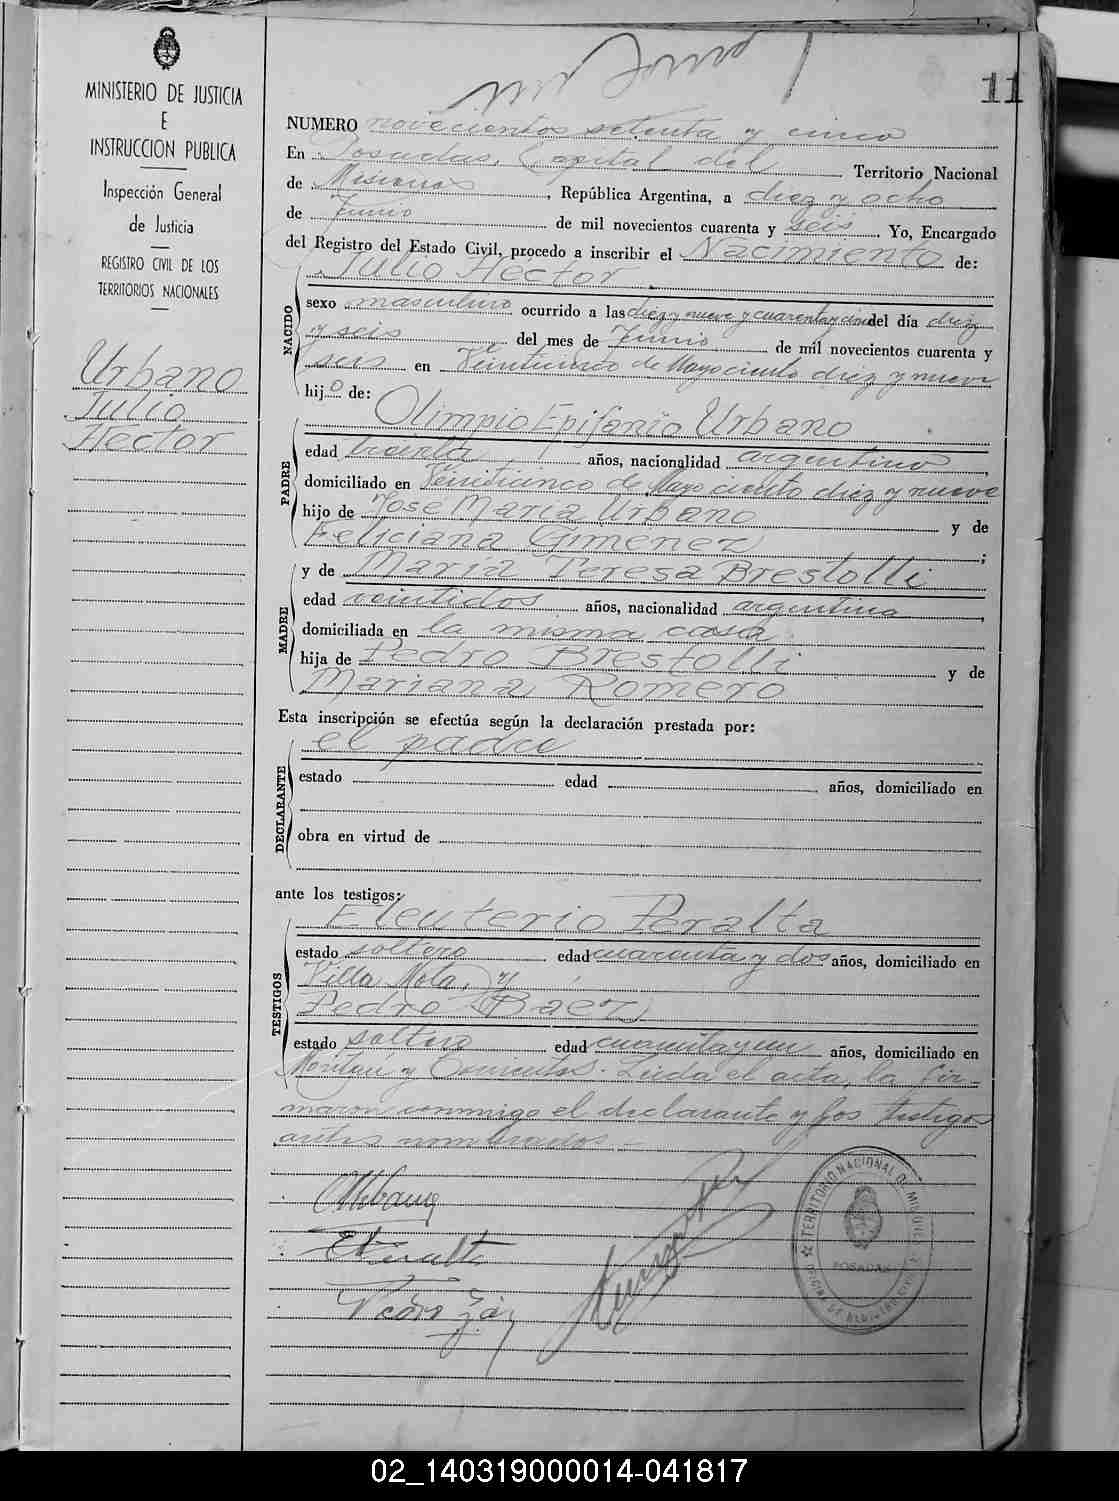 11
MINISTERIO DE JUSTICIA
E
INSTRUCCION PUBLICA
Inspección General
de Justicia
REGISTRO CIVIL DE LOS
TERRITORIOS NACIONALES
Urbano
Julio
Hector
NUMERO novecientos setenta y cinco
En Posadas, Capital del Territorio Nacional
de Misiones, República Argentina, a diez y ocho
de Junio de mil novecientos cuarenta y seis. Yo, Encargado
del Registro del Estado Civil, procedo a inscribir el Nacimiento de:
Julio Hector
NACIDO
sexo masculino ocurrido a las diez y nueve y cuarenta y cinco del día diez
y seis del mes de Junio de mil novecientos cuarenta y
seis en Veinticinco de Mayo ciento diez y nueve
hijo de:
Olimpio Epifanio Urbano
PADRE
edad treinta años, nacionalidad argentino,
domiciliado en Veinticinco de Mayo ciento diez y nueve
hijo de José María Urbano y de
Feliciana Gimenez;
y de María Teresa Brestolli
MADRE
edad veintidos años, nacionalidad argentina,
domiciliada en la misma casa
hija de Pedro Brestolli y de
Mariana Romero
Esta inscripción se efectúa según la declaración prestada por:
el padre
DECLARANTE
estado edad años, domiciliado en
obra en virtud de
ante los testigos:
Eleuterio Peralta
TESTIGOS
estado soltero edad cuarenta y dos años, domiciliado en
Villa Mola, y
Pedro Baez
estado soltero edad cuarenta y un años, domiciliado en
y Corrientes. Leida el acta, la fir-
maron conmigo el declarante y los testigos
antes nombrados.-
TERRITORIO NACIONAL DE MISIONES
POSADAS
02_140319000014-041817